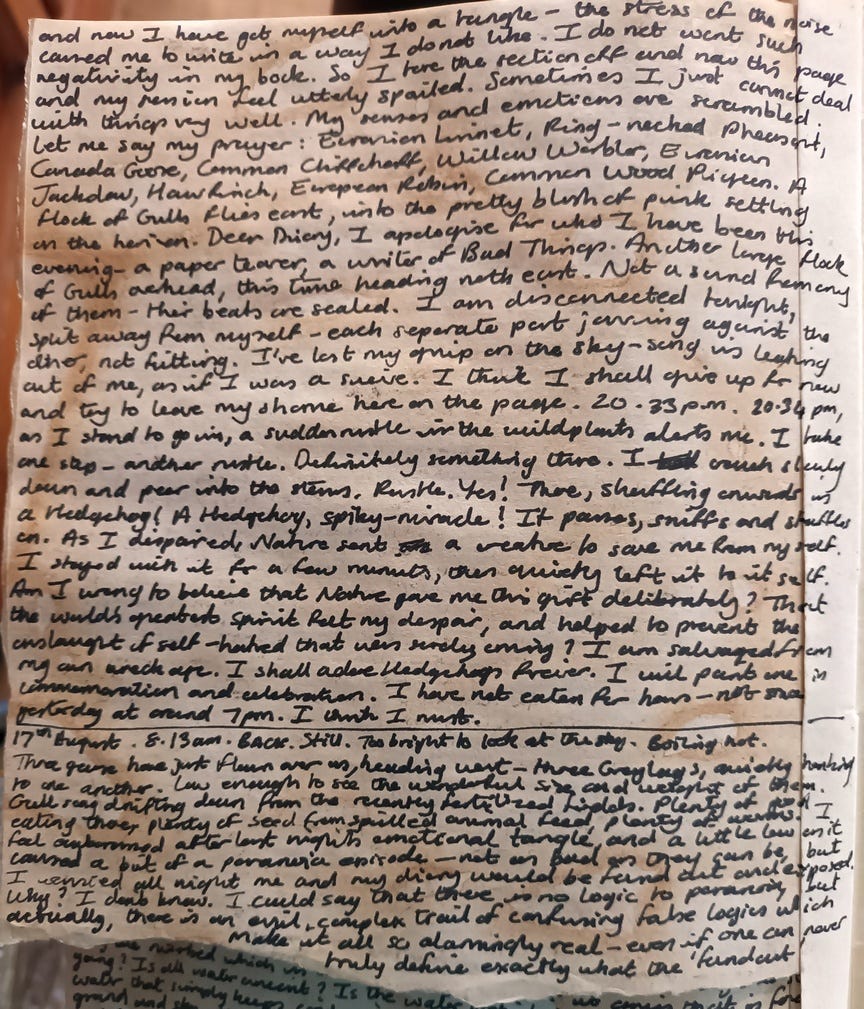 and now I have got myself into a tangle - the stress of the noise
caused me to write in a way I do not like. I do not want such
negativity in my book. So I tore the section off and now this page
and my session feel utterly spoiled. Sometimes I just cannot deal
with things very well. My senses and emotions are scrambled.
Let me say my prayer: Eurasian Linnet, Ring-necked Pheasant,
Canada Goose, Common Chiffchaff, Willow Warbler, Eurasian
Jackdaw, Hawfinch, European Robin, Common Wood Pigeon. A
flock of Gulls flies east, into the pretty blush of pink settling
on the horizon. Dear Diary, I apologise for who I have been this
evening - a paper tearer, a writer of Bad Things. Another large flock
of Gulls overhead, this time heading north east. Not a sound from any
of them - their beaks are sealed. I am disconnected tonight,
split away from myself - each separate part jarring against the
other, not fitting. I've lost my grip on the sky-song is leaking
out of me, as if I was a sieve. I think I shall give up for now
and try to leave my shame here on the page. 20.33pm. 20.34pm,
as I stand to go in, a sudden rustle in the wild plants alerts me. I take
one step - another rustle. Definitely something there. I crouch slowly
down and peer into the stems. Rustle. Yes! There, shuffling onwards is
a Hedgehog! A Hedgehog, spiky-miracle! It pauses, sniffs and shuffles
on. As I despaired, Nature sent a creature to save me from my self.
I stayed with it for a few minutes, then quickly left it to it self.
Am I wrong to believe that Nature gave me this gift deliberately? That
the world's greatest spirit felt my despair, and helped to prevent the
onslaught of self-hatred that was surely coming? I am salvaged from
my own wreckage. I shall adore Hedgehogs forever. I will paint one in
commemoration and celebration. I have not eaten for hours - not since
yesterday at around 7pm. I think I must.
17th August. 8.13am. BACK. Still. Too bright to look at the sky. Boiling hot.
Three geese have just flown over us, heading west - three Greylags, quietly honking
to one another. Low enough to see the wonderful size and weight of them.
Gull song drifting down from the recently fertilized fields. Plenty of good
eating there, plenty of seed from spilled animal feed, plenty of worms. I
feel embarrassed after last nights emotional tangle, and a little low as it
caused a bit of a paranoia episode - not as bad as they can be, but
I worried all night me and my diary would be found out and exposed.
Why? I don't know. I could say that there is no logic to paranoia, but
actually, there is an evil, complex trail of confusing false logics which
make it all so alarmingly real - even if one can never
truly define exactly what the 'found out'
which is
going? Is all water ancient? Is the water
water that simply keeps
ground and